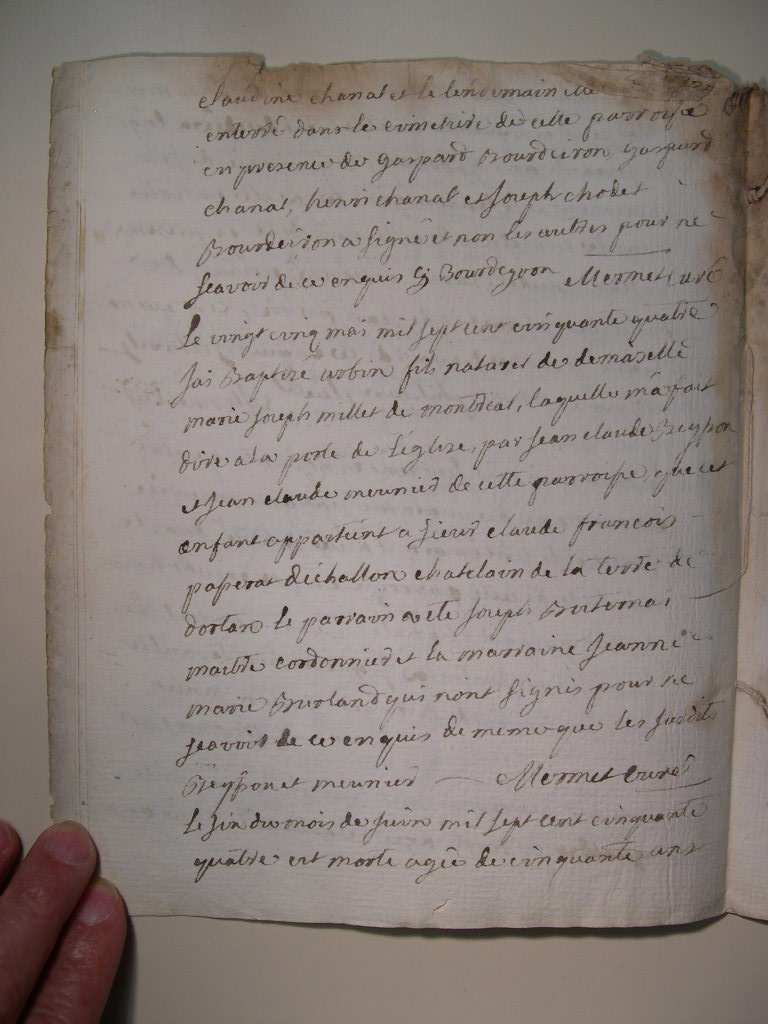 claudine chanal et le lendemain ete
enterré dans le cimetiere de cette parroisse
en presence de gaspard Bourdeiron, gaspard
chanal, henri chanal et joseph chodet
Bourdeiron a signé et non les aultres pour ne
scavoir de ce enquis Bourdeyron Mermet curé
Le vingt cinq mai mil sept cent cinquante quatre
jai Baptizé urbin fils naturel de demaiselle
marie joseph millet de montreal, laquelle m'a fait
dire a la porte de l'eglize, par jean claude Reyppon
et jean claude meunier de cette parroisse, que cet
enfant appartient a sieur claude francois
passerat d'échallon chatelain de la terre de
dortan le parrain a ete joseph
maitre cordonnier et la marraine jeanne
marie Burland qui n'ont signés pour ne
scavoir de ce enquis de meme que les susdits
Reyppon et meunier Mermet curé
Le six du mois de juin mil sept cent cinquante
quatre est morte agée de cinquante ans